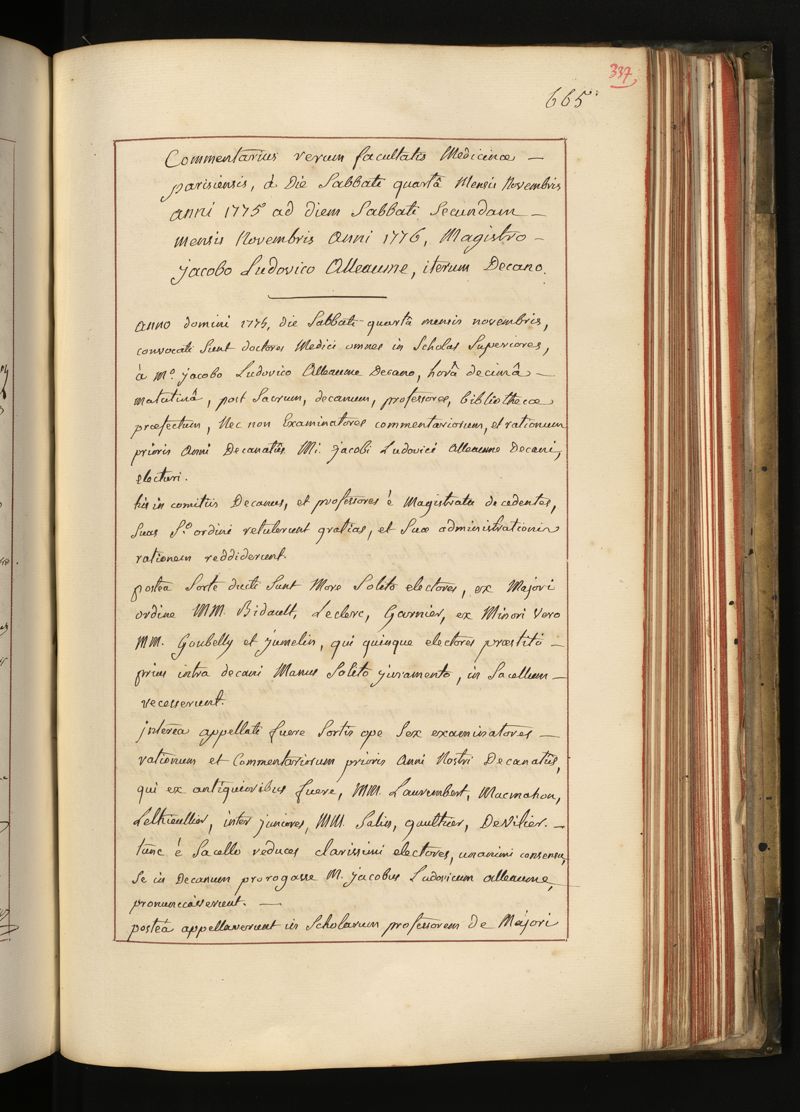 337
665
Commentarius rerum facultatis Medicinæ —
parisiensis, à Die Sabbati quartâ Mensis Novembris
anni 1775° ad diem Sabbati Secundam —
mensis Novembris Anni 1776, Magistro —
jacobo Ludovico Alleaume, iterum Decano.
anno domini 1775, die Sabbati quartâ mensis novembris,
convocati Sunt doctores Medici omnes in Scholas Superiores,
à M.º jacobo Ludovico Alleaume Decano, horâ decimâ —
matutinâ, post Sacrum, decanum, professores, bibliothecæ
præfectum, Nec non Examinatores commentariorum, et rationum
prioris Anni Decanatûs Mi. jacobi Ludovici Alleaume Decani,
electuri.
his in comitiis Decanus, et professores è Magistratu decedentes,
Suas S.º ordini retulerunt gratias, et Suæ administrationis
rationem reddiderunt.
posteà Sorte ducti Sunt More Solito electores, ex Majori
ordine MM. Bidault, Leclerc, Garnier, ex Minori Vero
MM. Goubelly et jumelin, qui quinque electores præstitò —
prius intra decani Manus Solito juramento, in Sacellum —
recesserunt.
intereà appellati fuere Sortis ope Sex examinatores —
rationum et Commentariorum prioris Anni Nostri Decanatûs,
qui ex antiquioribus fuere, MM. Laurembert, Macmahon,
Lethieullier, inter juniores, MM. Salin, gaultier, DeVilier. —
tunc è Sacello reduces clarissimi electores, unanimi consensu,
Se in Decanum prorogasse M. jacobus Ludovicum alleaume,
pronunciàverunt. —
posteà appellaverunt in Scholarum professorem de Majori